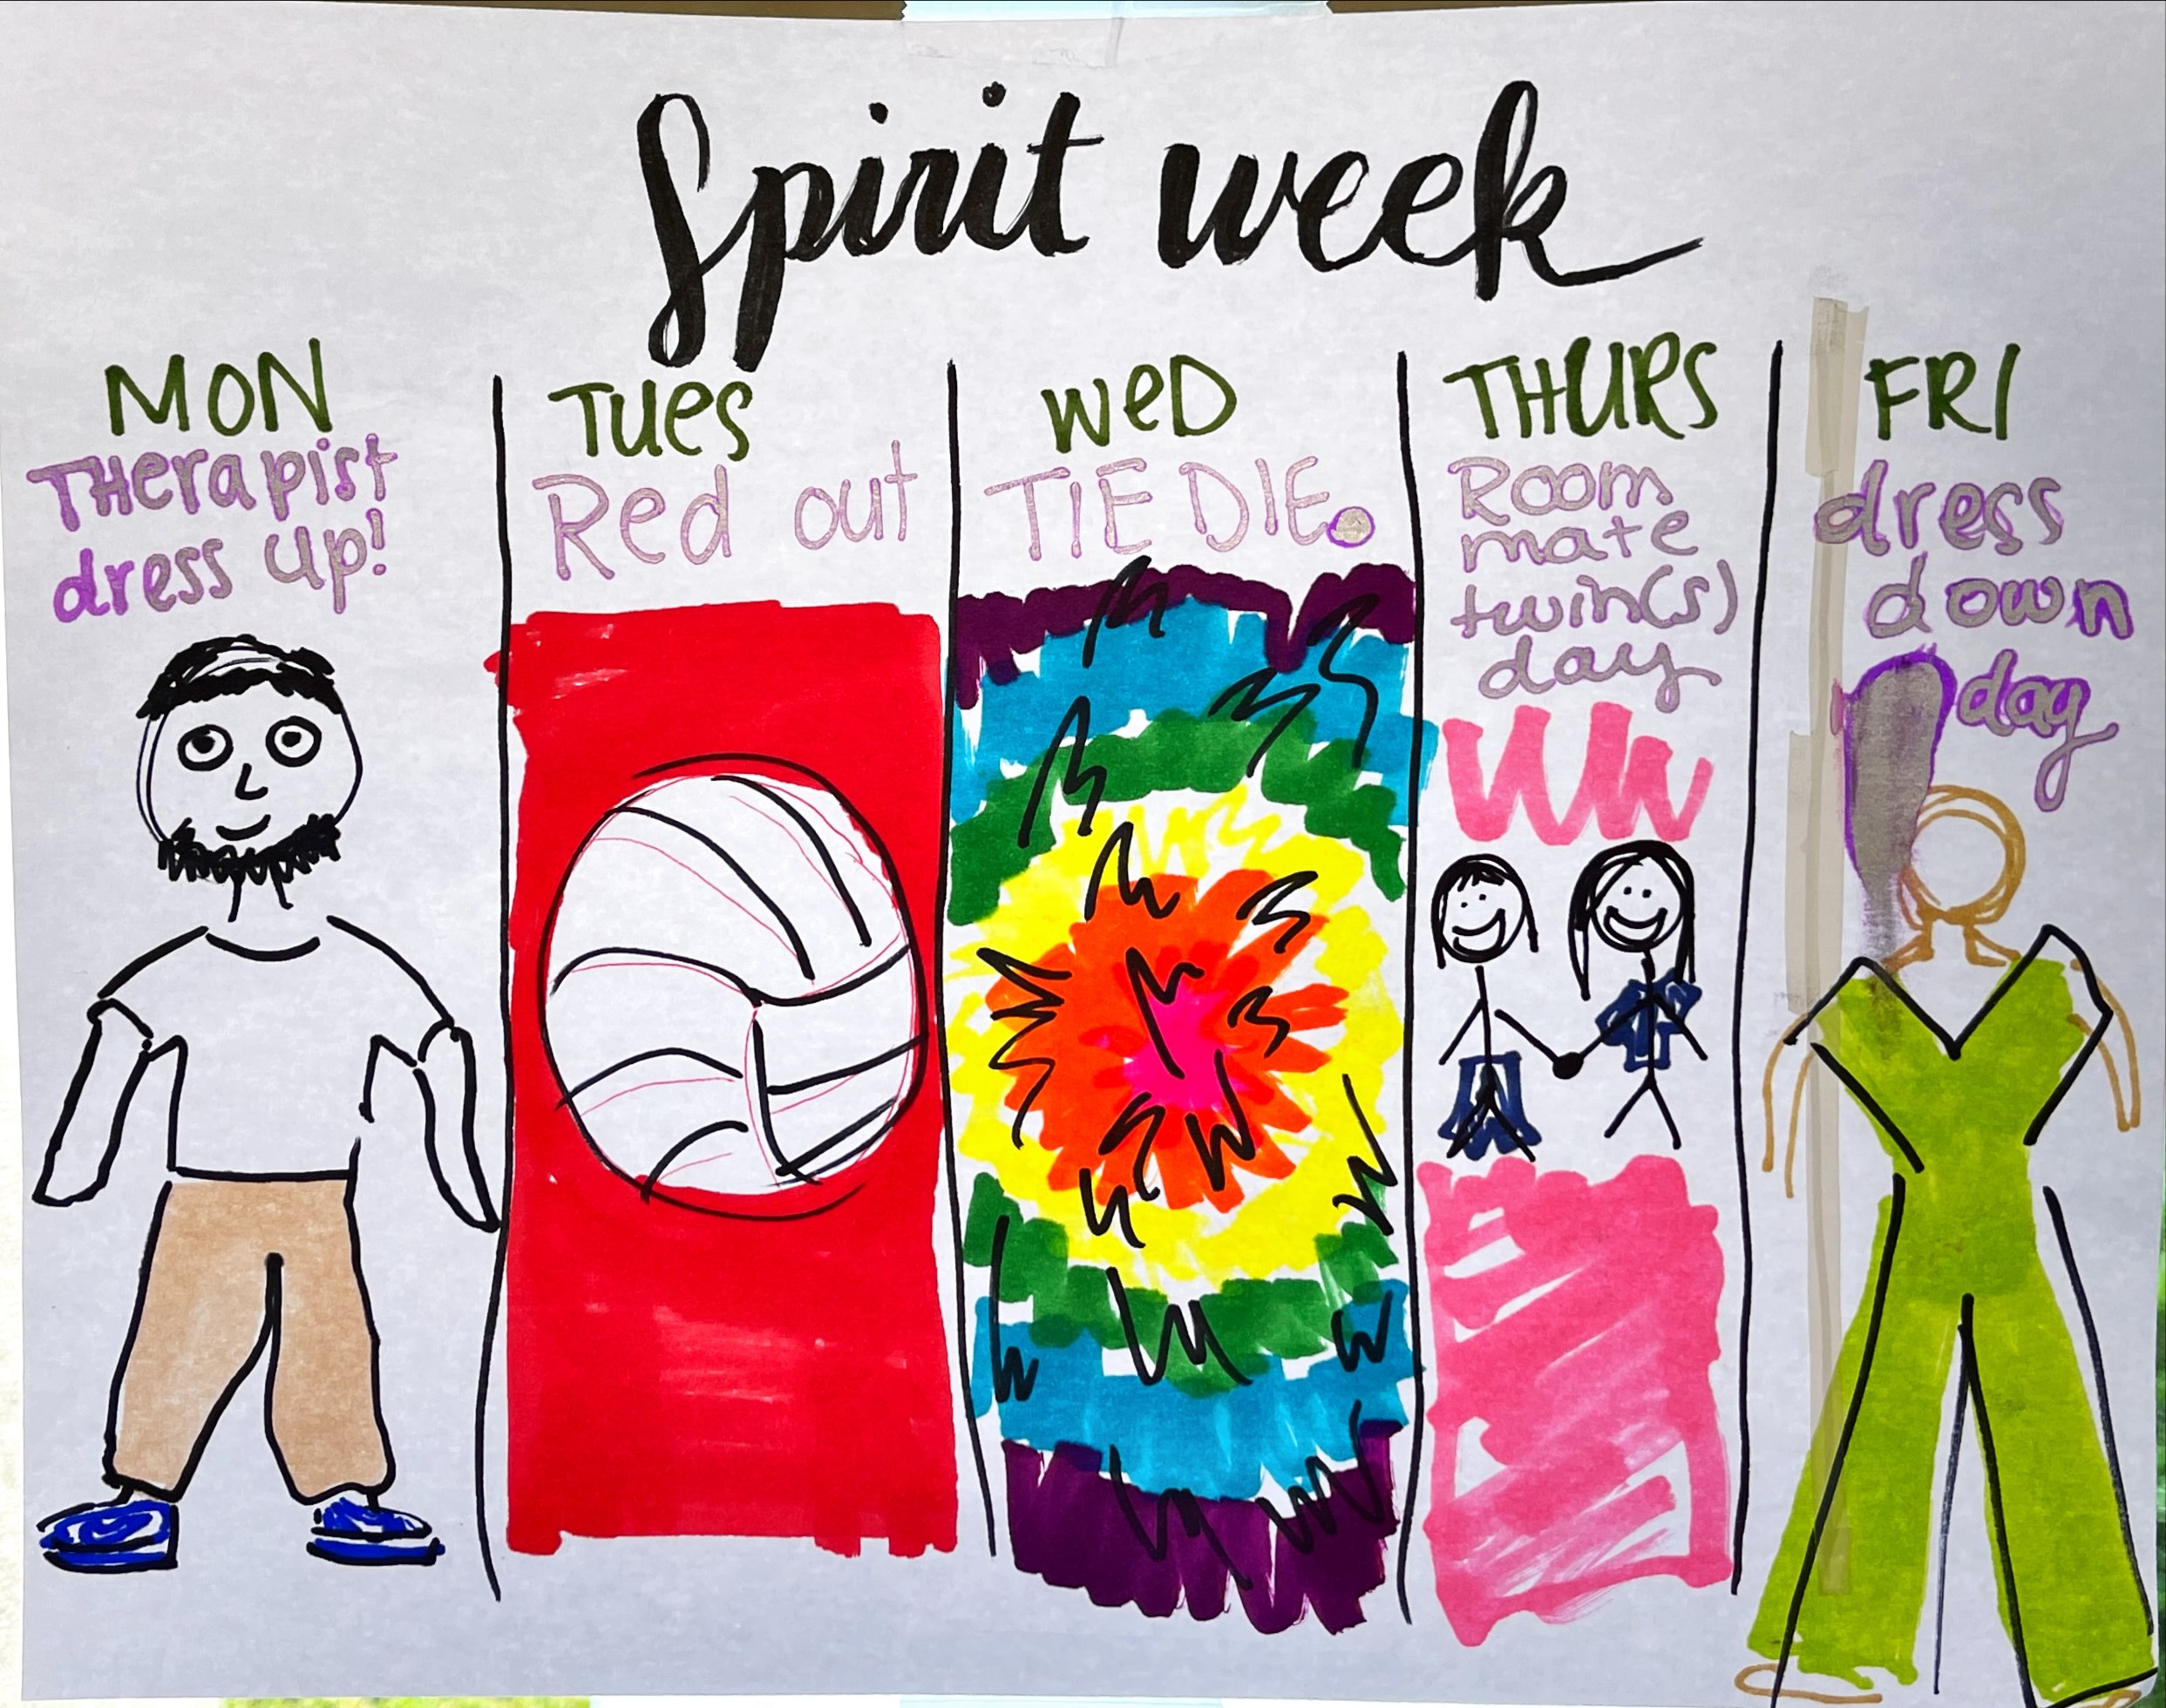 Spirit week
MON
THerapist
dress up!
Tues
Red out
WeD
TIE DIE.
THURS
Room
mate
twin(s)
day
FRI
dress
down
day